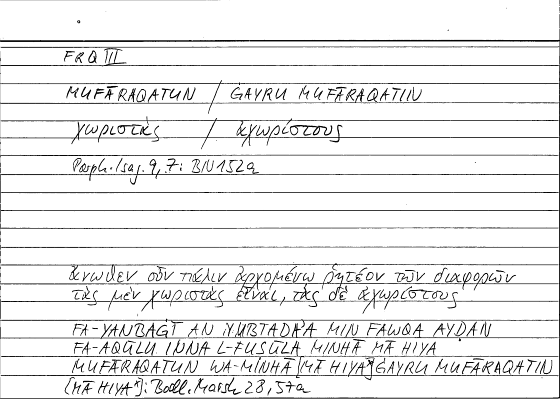 FRQ III
MUFĀRAQATUN / ĠAYRU MUFĀRAQATIN
χωριστὰς / ἀχωρίστους
Porph. Isag. 9, 7: BN 152a
ἄνωθεν οὖν πάλιν ἀρχομένῳ ῥητέον τῶν διαφορῶν
τὰς μὲν χωριστὰς εἶναι, τὰς δὲ ἀχωρίστους
FA-YANBAĠĪ AN YUBTADA'A MIN FAWQA AYḌAN
FA-AQŪLU INNA L-FUṢŪLA MINHĀ MĀ HIYA
MUFĀRAQATUN WA-MINHĀ [MĀ HIYA*] ĠAYRU MUFĀRAQATIN
[MĀ HIYA*]: Bodl. Marsh 28, 57a